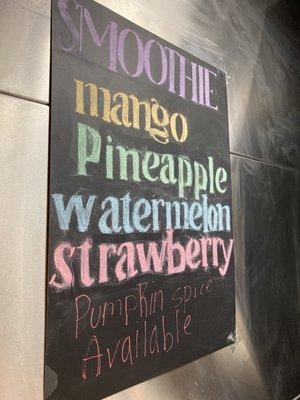 SMOOTHIE
mango
Pineapple
watermelon
strawberry
Pumpkin spice
Available